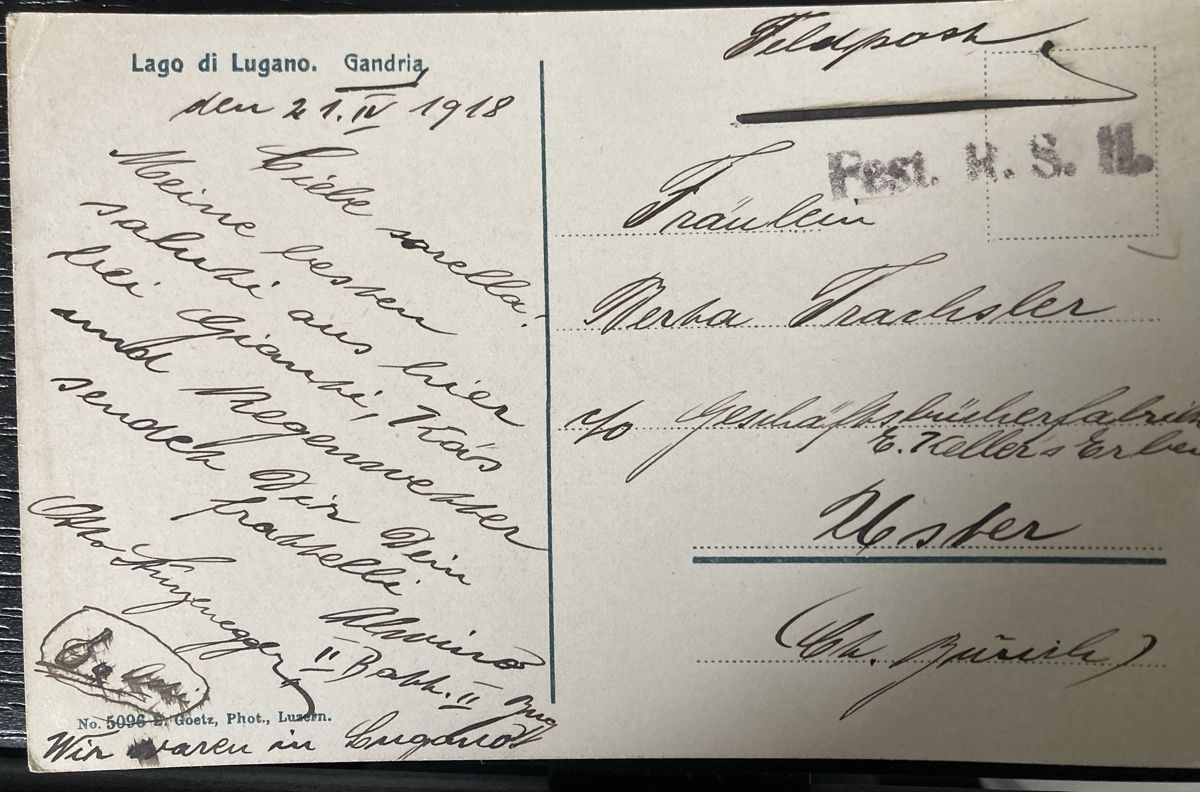 Lago di Lugano. Gandria
den 21. IV 1918
Liebe sorella!
Meine besten
saluti aus hier
bei Gianti, Käs
und Regenwetter
sendet Dir Dein
fratelli
Alwino
II Batt. II
Otto
No. 5096 E. Goetz, Phot., Luzern.
Wir waren in Lugano
Feldpost
Fest. R. S. II.
Fräulein
Berta Trachsler
c/o Geschäftsbücherfabrik
E. Keller's Erben
Uster
(Ct. Zürich)